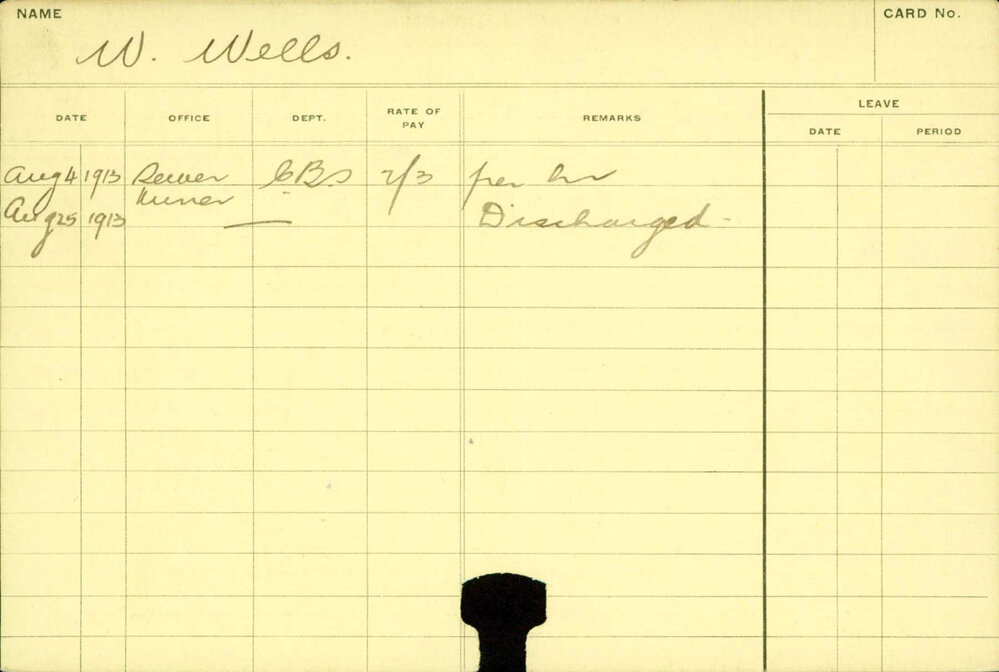 NAME
CARD No.
W. Wells.
DATE OFFICE DEPT. RATE OF PAY REMARKS LEAVE
DATE PERIOD
Aug 4 1913 Sewer CBS 2/3 per hr
Miner
Aug 25 1913 — Discharged -